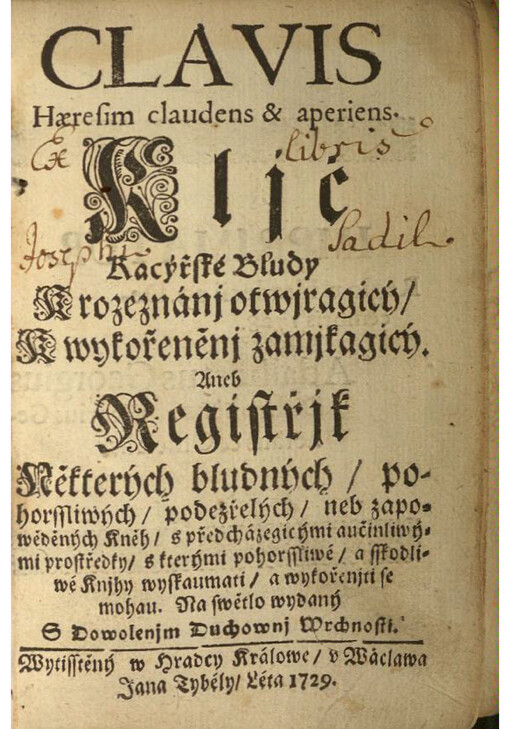 CLAVIS
Hæresim claudens & aperiens.
Ex libris
Kljč
Josephi Sadil.
Kacýřské Bludy
K rozeznánj otwjragjcý/
K wykořeněnj zamjkagicý.
Aneb
Registřjk
Některých bludných / po-
horssliwých / podezřelých / neb zapo-
wěděných Kněh / s předcházegicými aučinliwý-
mi prostředky / s kterými pohorssliwé / a sskodli-
wé Knjhy wyskaumati / a wykořenjti se
mohau. Na swětlo wydaný
S Dowolenjm Duchownj Wrchnosti.
Wytisstěný w Hradcy Králowe / v Wáclawa
Jana Tybély / Léta 1729.